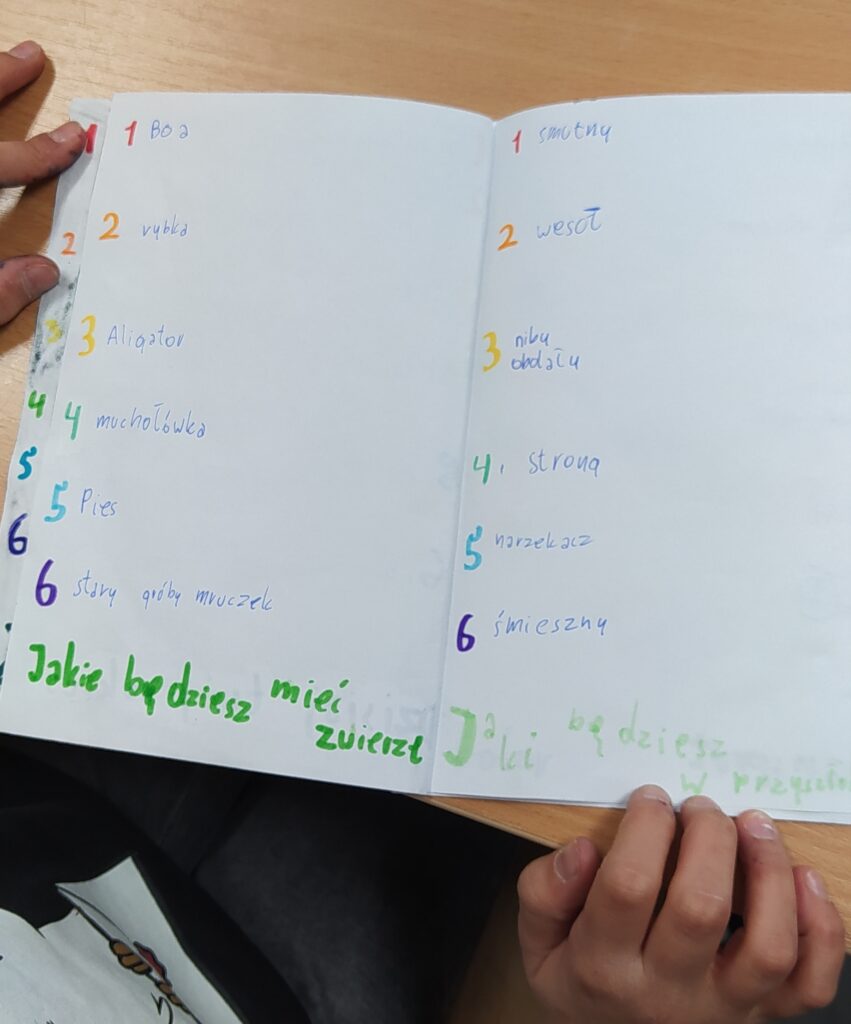 1 1 Boa
2 2 rybka
3 3 Aligator
4 4 muchołówka
5 5 Pies
6 6 stary gróby mruczek
Jakie będziesz mieć
zwierzę
1 smutny
2 wesoł
3 niby
obdału
4. stroną
5 narzekacz
6 śmieszny
Jaki będziesz
w przyszło